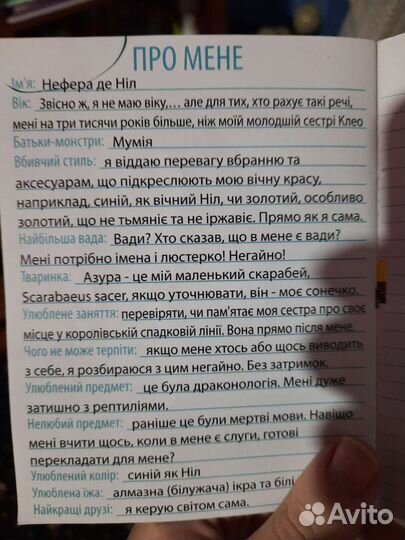 ПРО МЕНЕ
Ім'я: Нефера де Ніл
Вік: Звісно ж, я не маю віку,... але для тих, хто рахує такі речі,
мені на три тисячі років більше, ніж моїй молодшій сестрі Клео
Батьки-монстри: Мумія
Вбивчий стиль: я віддаю перевагу вбранню та
аксесуарам, що підкреслюють мою вічну красу,
наприклад, синій, як вічний Ніл, чи золотий, особливо
золотий, що не тьмяніє та не іржавіє. Прямо як я сама.
Найбільша вада: Вади? Хто сказав, що в мене є вади?
Мені потрібно імена і люстерко! Негайно!
Тваринка: Азура - це мій маленький скарабей,
Scarabaeus sacer, якщо уточнювати, він - моє сонечко.
Улюблене заняття: перевіряти, чи пам'ятає моя сестра про своє
місце у королівській спадковій лінії. Вона прямо після мене.
Чого не може терпіти: якщо мене хтось або щось виводить
з себе, я розбираюся з цим негайно. Без затримок.
Улюблений предмет: це була драконологія. Мені дуже
затишно з рептиліями.
Нелюбий предмет: раніше це були мертві мови. Навіщо
мені вчити щось, коли в мене є слуги, готові
перекладати для мене?
Улюблений колір: синій як Ніл
Улюблена їжа: алмазна (білужача) ікра та білі
Найкращі друзі: я керую світом сама.
Avito